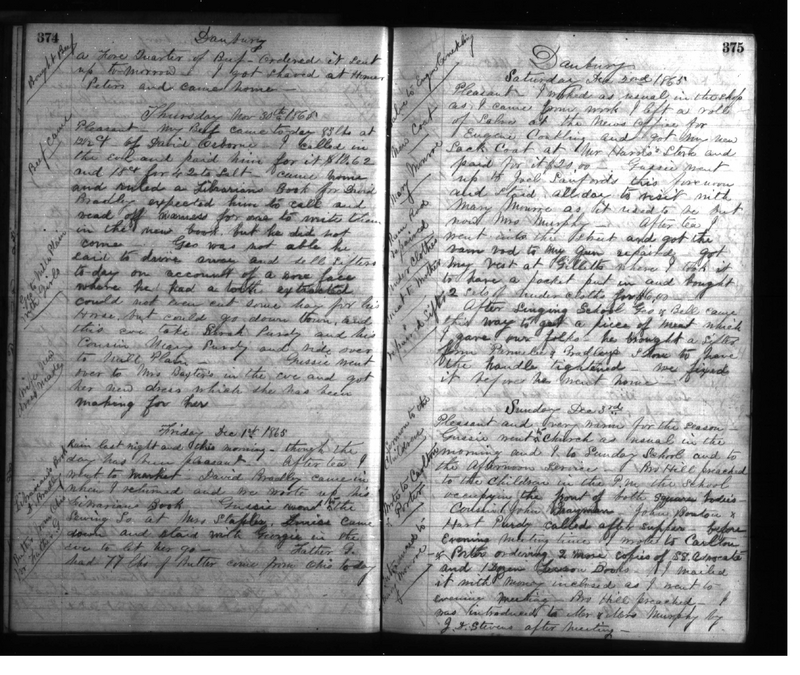 374
Danbury
a Fore Quarter of Beef - Ordered it sent
up to-morrow - I got shaved at Homer
Peters and came home -
Bought Beef
Thursday Nov 30th 1865
Pleasant - My Beef came to-day 93 lbs at
of David Osborne I called in
the eve and paid him for it $11.62
and 15ct for Salt - came home
and ruled a Librarians Book for David
Bradley expected him to call and
read off names for me to write them
in the new book but he did not
come - Geo was not able he
said to drive away and sell Sifters
to-day on account of a sore face
where he had a tooth extracted
could not even cut some hay for his
Horse but could go down town, and
this eve take Sarah Purdy and his
Cousin Purdy and ride over
to Mill Plain - Gussie went
over to Mrs Baxters in the eve and got
her new dress which she has been
making for her
Beef came
Geo to Mill Plain
with Girls
new
dress made
Friday Dec 1st 1865
Rain last night and this morning - though the
day has been pleasant - After tea I
went to market - David Bradley came in
when I returned and we wrote up his
Librarians Book - Gussie went to the
Sewing So. at Mrs Staples, Louise came
down and staid with Georgie in the
eve to let her go - Father I.
had 77 lbs of Butter come from Ohio to-day
Librarians Book
D Bradley
Butter from Ohio
for Father I
375
Danbury
Saturday Dec 2nd 1865
Pleasant I worked as usual in the shop
as I came from work I left a note
at the News Office for
Eugene and got my new
Sack Coat at Mr Harris Store and
paid for it - Gussie went
up to Joel Sanfords this forenoon
and staid all day to visit with
Mary Monroe as it used to be but
now Mrs Murphy - After tea
went into the Street and got the
ram rod to my Gun repaired, got
my vest at Gilletts where I took it
to have a pocket put in and bought
2 sets of under cloths for
After Singing School Geo & Bell came
this way to get a piece of meat which
I gave our folks he brought a Sifter
from Bradleys Shop to have
the handle tightened we fixed
it before he went home -
New Coat
Mary Monroe
Ram Rod
repaired
under clothes
meat to Mother
Sifter
Sunday Dec 3rd
Pleasant and very warm for the season -
Gussie went to Church as usual in the
morning and I to Sunday School and to
the Afternoon service - Bro Hill preached
to the Children in the P.M. the School
occupying the front of both Square bodies
Cousin John - John Bouton &
Hart Purdy called after supper - before
Evening meeting time I wrote to Carlton
& Porter ordering 2 more copies of SS. Advocate
and 1 Dozen Lesson Books - I mailed
it with money inclosed as I went to
evening meeting - Bro Hill preached - I
was introduced to Mr & Mrs Murphy by
J. Stevens after meeting -
Sermon to the
Children
Note to Carlton
& Porter
Introduced to
Mary Monroe